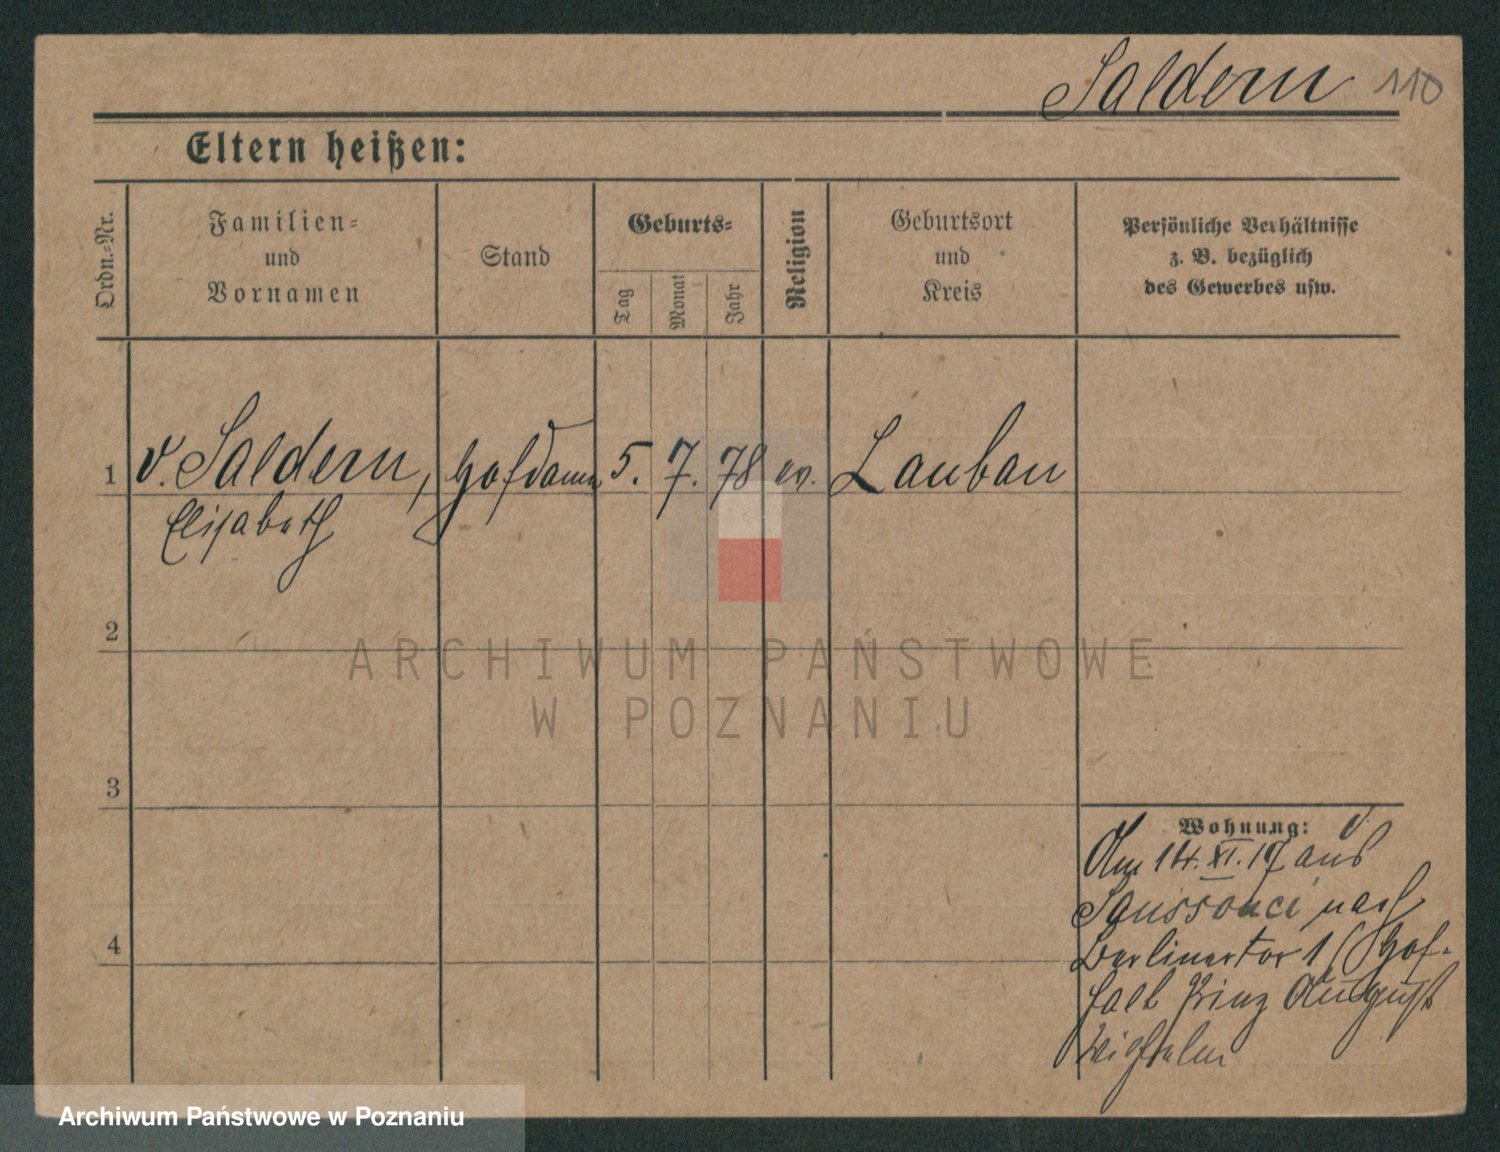 Saldern 110
Eltern heißen:
Ordn.-Nr.
Familien-
und
Vornamen
Stand
Geburts-
Tag
Monat
Jahr
Religion
Geburtsort
und
Kreis
Persönliche Verhältnisse
z. B. bezüglich
des Gewerbes usw.
1 v. Saldern, Hofdame 5. 7. 78 ev. Lauban
Elisabeth
2
ARCHIWUM PAŃSTWOWE
W POZNANIU
3
4
Wohnung: v.
Am 14. XI. 17 aus
Sanssouci nach
Berlinertor 1 (Hof-
halt Prinz August
Wilhelm
Archiwum Państwowe w Poznaniu